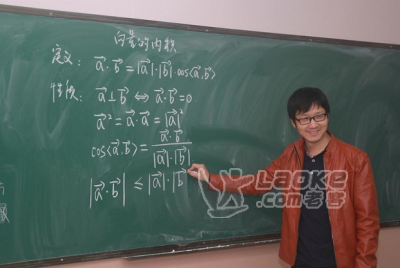 向量的内积
定义: a⃗·b⃗=|a⃗|·|b⃗|cos<a⃗,b⃗>
性质: a⃗⊥b⃗ ⇔ a⃗·b⃗=0
a⃗²=a⃗·a⃗=|a⃗|²
cos<a⃗,b⃗>=a⃗·b⃗/|a⃗|·|b⃗|
|a⃗·b⃗| ≤ |a⃗|·|b⃗
LAOKE
.com老客